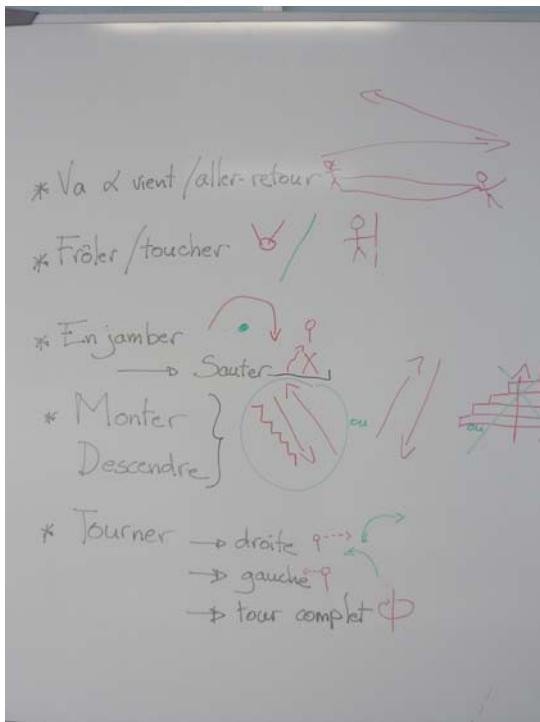 * Va & vient / aller-retour
* Frôler / toucher
* Enjamber
→ Sauter
* Monter
ou
ou
Descendre
* Tourner → droite
→ gauche
→ tour complet